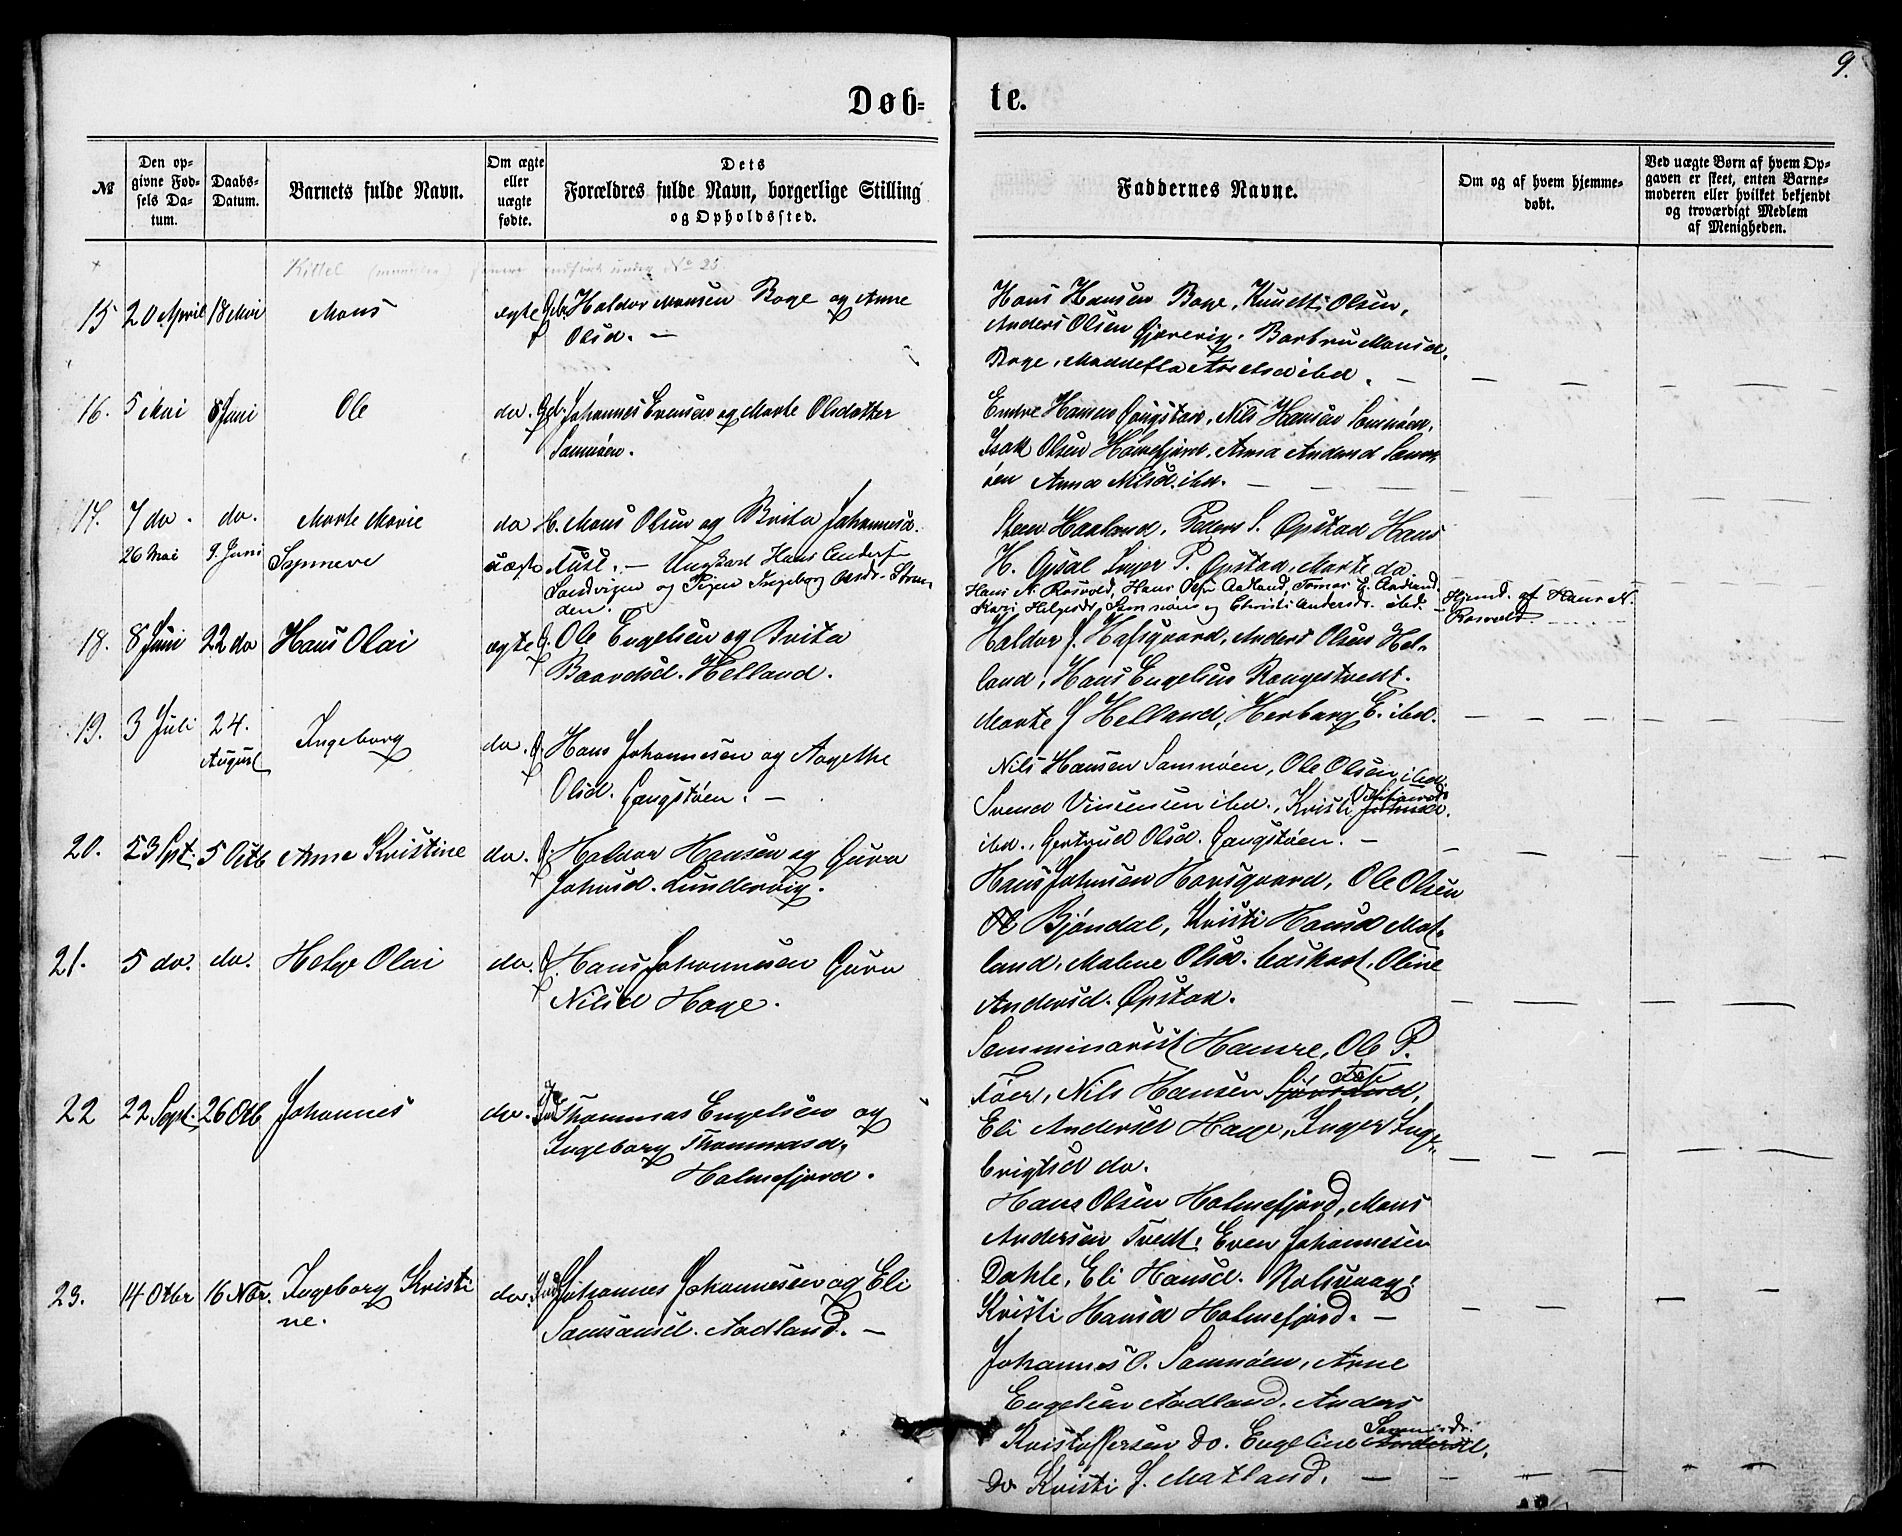 9.
Døb-
te.
№
Den op-
givne Fød-
sels Da-
tum.
Daabs-
Datum.
Barnets fulde Navn.
Om ægte
eller
uægte
fødte.
Dets
Forældres fulde Navn, borgerlige Stilling
og Opholdssted.
Faddernes Navne.
Om og af hvem hjemme-
døbt.
Ved uægte Børn af hvem Op-
gaven er skeet, enten Barne-
moderen eller hvilket bekjendt
og troværdigt Medlem
af Menigheden.
Kittel under No 25
15 20 April 18 Mai Mons ægte Haldor Monsen Boge og Anne
Olsd. —
Hans Hansen Boge, Knudt Olsen,
Anders Olsen Gjerevig, Barbru Monsd.
Boge, ibd. —
16. 5 Mai 8 Juni Ole do. Johannes Evensen og Marte Olsdotter
Samnøen.
Endre Hansen Gougstad, Nils Hansen Samnøen,
Isak Olsen Holmefjord, Anna Andersd Samn
øen Anna Nilsd. ibd.
17. 7 do. do. Marte Marie do H. Mons Olsen og Brita Johannesd.
Fuse. —
Steen Haaland, Peders S. Opstad Hans
H. Opdal Inger P. Opstad, Marte do
26 Mai 9. Juni Synneve uægte Ungkarl Hans Anders
Sandvigen og Pigen Ingeborg Olsdr. Stran
den.
Hans N. Rosvold, Hans Aadland, Tomas E. Aadland
Kari Helgesdr. Samnøen og Christi Andersdr. ibd.
Hjemd. af Hans N.
Rosvold
18. 8 Juni 22 do Hans Olai ægte Ole Engelsen og Brita
Baardsd. Helland.
Haldor J. Hafsgaard, Anders Olsen Hel-
land, Hans Engelsen Rongestvedt.
Marte J Helland, Herborg E. ibd.
19. 3 Juli 24.
August Ingeborg do. Hans Johannesen og Aagethe
Olsd. Gougstøen. —
Nils Hansen Samnøen, Ole Olsen ibd.
Svend Vincensen ibd., Kristi
ibd., Gertrud Olsd. Gougstøen. —
20. 23 Spt. 5 Octb Anne Kristine do. Haldor Hansen og Guro
Johnsd. Lundervig.
Hans Johnsen Hovsgaard, Ole Olsen
Bjøndal, Kristi Hansd Mat-
land, Malene Olsd. Oline
Andersd. Opstad.
21. 5 do. do. Helge Olai do. Hans Johannesen Guro
Nilsd Hage.
Semminarist Hamre, Ole P.
Nils Hansen
Eli Andersd Hage, Inger Inge-
brigtsd do.
22 22 Sept. 26 Otb Johannes do. Thommas Engelsen og
Ingeborg Thommasd.
Holmefjord.
Hans Olsen Holmefjord, Mons
Andersen Tvedt, Even Johannesen
Dahle, Eli Hansd. Rolsvaag,
Kristi Hansd Holmefjord. —
23. 14 Otbr 16 Nor. Ingeborg Kristi
ne. do. Johannes Johannesen og Eli
Samsonsd. Aadland. —
Johannes O. Samnøen, Arne
Engelsen Aadland. Anders
Kristoffersen do. Engeline
do Kristi J. Matland. —